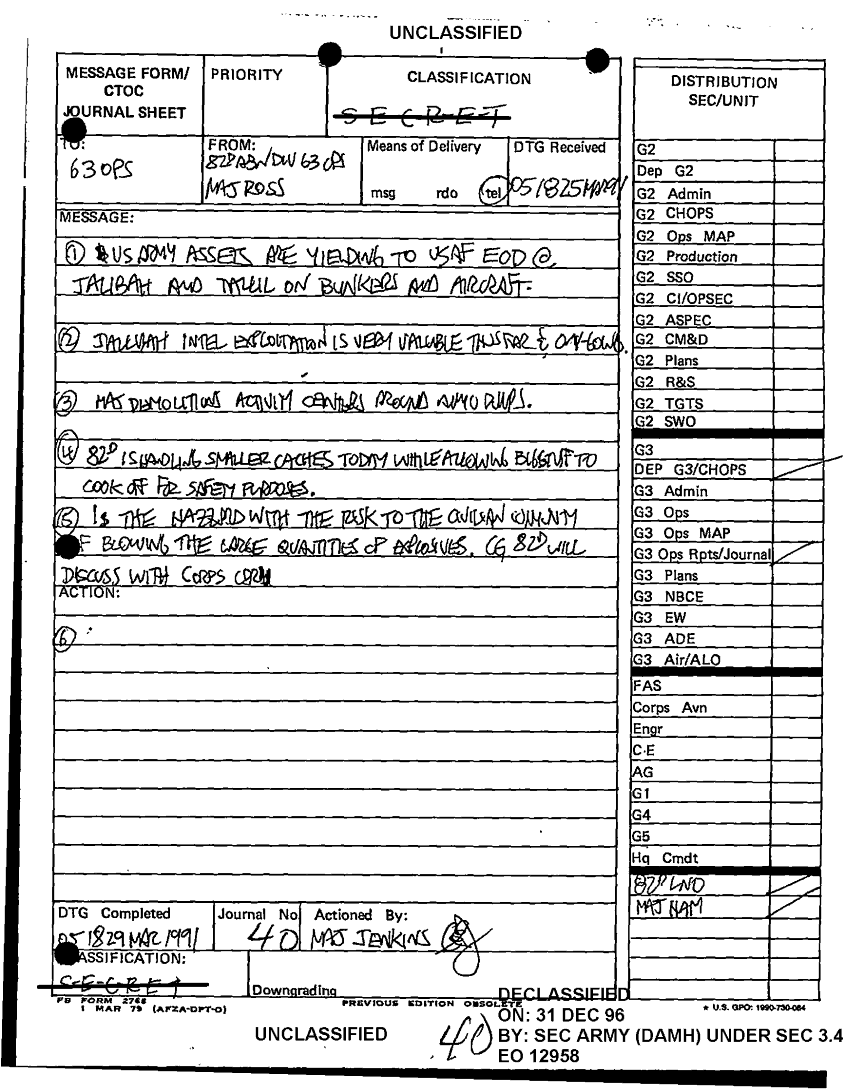 UNCLASSIFIED
MESSAGE FORM/
CTOC
JOURNAL SHEET
PRIORITY
CLASSIFICATION
S-E-C-R-E-T
TO:
63 OPS
FROM:
82D ABN DIV G3 OPS
MAJ ROSS
Means of Delivery
msg rdo tel
DTG Received
051825MAR91
MESSAGE:
① US ARMY ASSETS ARE YIELDING TO USAF EOD @
JALIBAH AND TALLIL ON BUNKERS AND AIRCRAFT.
② INTEL EXPLOITATION IS VERY VALUABLE THUS FAR & ON-GOING.
③ MAJ DEMOLITIONS ACTIVITY CENTERS AROUND AMMO DUMPS.
④ 82D IS HANDLING SMALLER CACHES TODAY WHILE ALLOWING BIG STUFF TO
COOK OFF FOR SAFETY PURPOSES.
⑤ IS THE HAZZARD WITH THE RISK TO THE CIVILIAN COMMUNITY
F BLOWING THE LARGE QUANTITIES OF EXPLOSIVES. CG 82D WILL
DISCUSS WITH CORPS CDR
ACTION:
⑥
DTG Completed
051829 MAR 1991
Journal No
40
Actioned By:
MAJ JENKINS
ASSIFICATION:
S-E-C-R-E-T
Downgrading
FB FORM 2768
1 MAR 79 (AFZA-DPT-O)
PREVIOUS EDITION OBSOLETE
DISTRIBUTION
SEC/UNIT
G2
Dep G2
G2 Admin
G2 CHOPS
G2 Ops MAP
G2 Production
G2 SSO
G2 CI/OPSEC
G2 ASPEC
G2 CM&D
G2 Plans
G2 R&S
G2 TGTS
G2 SWO
G3
DEP G3/CHOPS
G3 Admin
G3 Ops
G3 Ops MAP
G3 Ops Rpts/Journal
G3 Plans
G3 NBCE
G3 EW
G3 ADE
G3 Air/ALO
FAS
Corps Avn
Engr
C-E
AG
G1
G4
G5
Hq Cmdt
82D LNO
MAJ HAM
★ U.S. GPO: 1990-730-084
UNCLASSIFIED
40
DECLASSIFIED
ON: 31 DEC 96
BY: SEC ARMY (DAMH) UNDER SEC 3.4
EO 12958